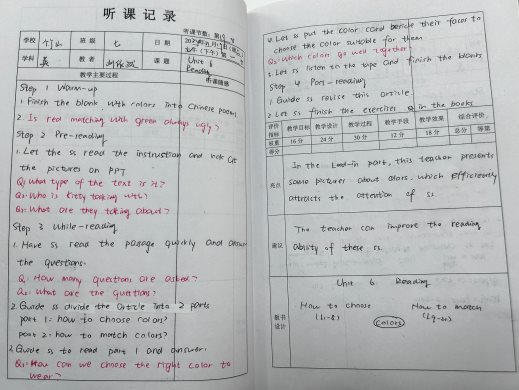 听课记录
学校
班级 七
日期
学科 英
教者
课题 Unit 6
Reading
教学主要过程
听课随感
Step 1 Warm-up
1. Finish the blank, with colors into Chinese poems
2. Is red matching with green always ugly?
Step 2 Pre-reading
1. Let the ss read the instruction and look at
the pictures on PPT
Q1: What type of the text is it?
Q2: Who is Kitty talking with?
Q3: What are they talking about?
Step 3 While-reading
1. Have ss read the passage quickly and answer
the questions.
Q1: How many questions are asked?
Q2: What are the questions?
2. Guide ss divide the article into 2 parts
part 1: how to choose colors?
part 2: how to match colors?
2. Guide ss to read part 1 and answer.
Q1: How can we choose the right color to
wear?
4. Let ss put the color card beside their faces to
choose the color suitable for them
Q2: Which colors go well together?
5. Let ss listen to the tape and finish the blanks
Step 4 Post-reading
1. Guide ss revise this article.
2. Let ss finish the exercises in the books
评价指标 教学目标 教学设计 教学过程 教学手段 教学效果 综合评价
权重 16分 24分 30分 12分 18分 总分 等第
得分
亮点
In the lead-in part, this teacher presents
some pictures about colors, which efficiently
attracts the attention of ss.
建议
The teacher can improve the reading
ability of these ss.
板书设计
Unit 6 Reading
How to choose How to match
Colors